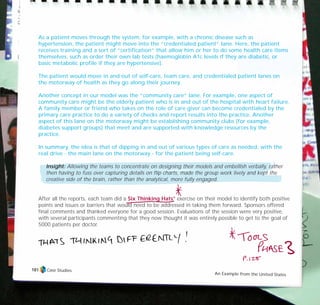 As a patient moves through the system; for example, with a chronic disease such as
hypertension, the patient might move into the "credentialed patient" lane. Here, the patient
receives training and a sort of "certification" that allow him or her to do some health care items
themselves, such as order their own lab tests (haemoglobin A1c levels if they are diabetic, or
basic metabolic profile if they are hypertensive).
The patient would move in and out of self-care, team care, and credentialed patient lanes on
the motorway of health as they go along their journey.
Another concept in our model was the "community care" lane. For example, one aspect of
community care might be the elderly patient who is in and out of the hospital with heart failure.
A family member or friend who takes on the role of care giver can become credentialed by the
primary care practice to do a variety of checks and report results into the practice. Another
aspect of this lane on the motorway might be establishing community clubs (for example,
diabetes support groups) that meet and are supported with knowledge resources by the
practice.
In summary, the idea is that of dipping in and out of various types of care as needed, with the
real drive - the main lane on the motorway - for the patient being self-care.
Insight: Allowing the teams to concentrate on designing their models and embellish verbally, rather
than having to fuss over capturing details on flip charts, made the group work lively and kept the
creative side of the brain, rather than the analytical, more fully engaged.
After all the reports, each team did a Six Thinking Hats* exercise on their model to identify both positive
points and issues or barriers that would need to be addressed in taking them forward. Sponsors offered
final comments and thanked everyone for a good session. Evaluations of the session were very positive,
with several participants commenting that they now thought it was entirely possible to get to the goal of
5000 patients per doctor.
THATS THINKING DIFFERENTLY!
* TOOLS
PHASE 3
P.125
181 Case Studies
An Example from the United States